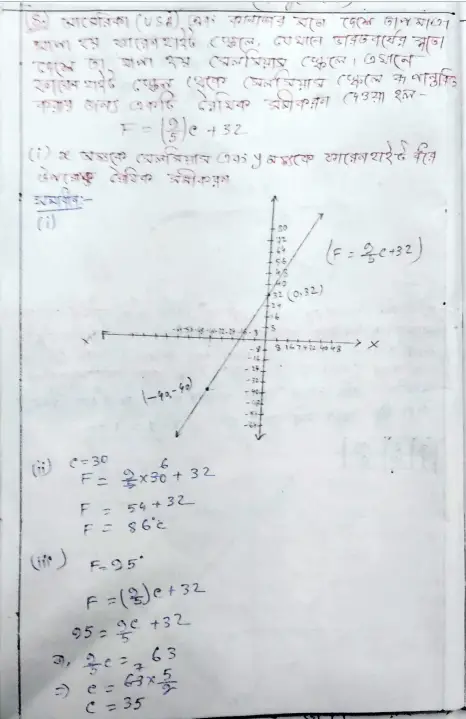 আমেরিকা (USA) এবং কানাডার মতো দেশে তাপমাত্রা
মাপা হয় ফারেনহাইট স্কেলে, যেখানে ভারতবর্ষের মতো
দেশে তা মাপা হয় সেলসিয়াস স্কেলে। এখানে
ফারেনহাইট স্কেল থেকে সেলসিয়াস স্কেলে রূপান্তরিত
করার জন্য একটি রৈখিক সমীকরণ দেওয়া হল-
F = (9/5)c + 32
(i) x অক্ষকে সেলসিয়াস এবং y অক্ষকে ফারেনহাইট ধরে
রৈখিক সমীকরণ
সমাধান:-
(i)
(F = 9/5 c+32)
(0,32)
X
(-40,-40)
(ii) c=30
F = 9/5 × 30 6 + 32
F = 54 + 32
F = 86°c
(iii) F=95°
F = (9/5)c + 32
95 = 9c/5 + 32
বা, 9/5 c = 63
=> c = 63 7 × 5/9
c = 35